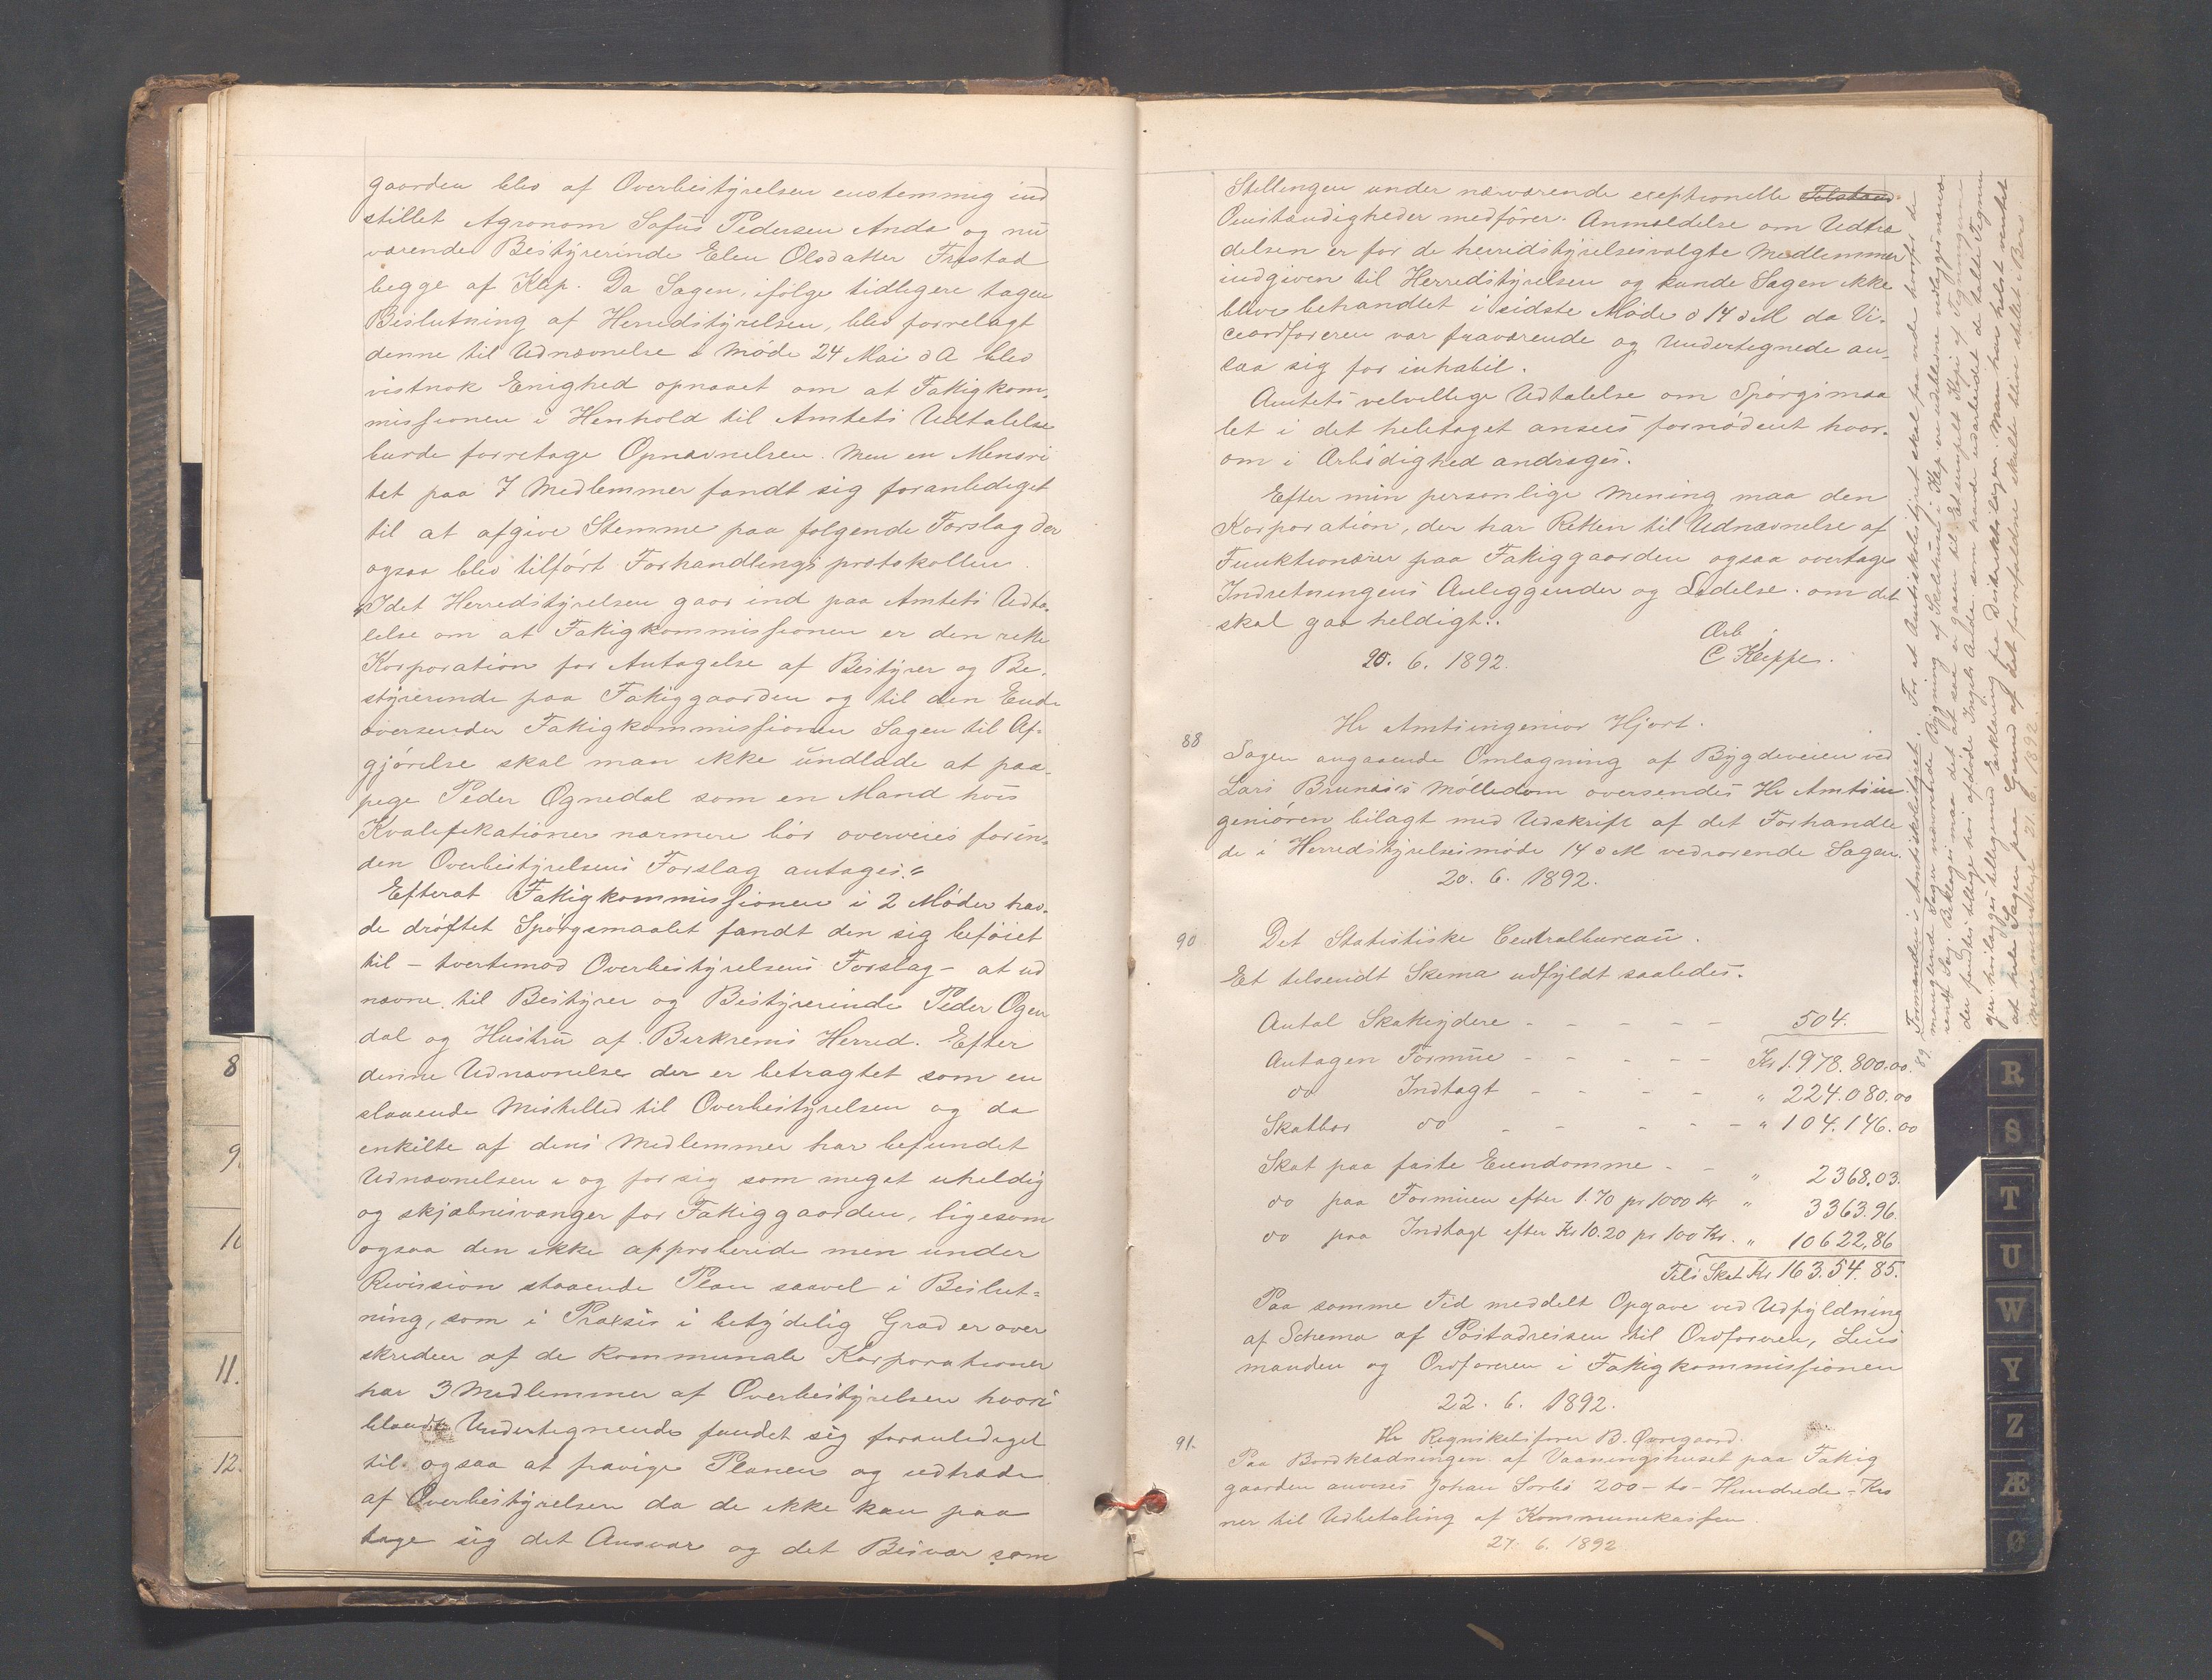 gaarden blev af Overbestyrelsen enstemmig ind
stillet Agronom Sofus Pedersen Anda og nu
værende Bestyrerinde Elen Olsdatter Frøstad
begge af Klep. Da Sagen, ifølge tidligere tagen
Beslutning af Herredstyrelsen, blev forrelagt
denne til Udnævnelse i Møde 24 Mai d A blev
vistnok Enighed opnaaet om at Fattigkom-
missionen i Henhold til Amtets Udtalelse
burde forretage Opnævnelsen. Men en Menori
tet paa 7 Medlemmer fandt sig foranlediget
til at afgive Stemme paa følgende Forslag der
ogsaa blev tilført Forhandlingsprotokollen.
"Idet Herredstyrelsen gaar ind paa Amtets Udta-
lelse om at Fattigkommissionen er den rette
Korporation for Antagelse af Bestyrer og Be-
styrerinde paa Fattiggaarden og til den Ende
oversender Fattigkommissionen Sagen til Af-
gjørelse skal man ikke undlade at paa-
pege Peder Ognedal som en Mand hvis
Kvalifikationer nærmere bør overveies forin-
den Overbestyrelsens Forslag antages."
Efterat Fattigkommissionen i 2 Møder hav-
de drøftet Spørgsmaalet fandt den sig beføiet
til - tvertimod Overbestyrelsens Forslag - at ud
nævne til Bestyrer og Bestyrerinde Peder Ogen
dal og Hustru af Birkrems Herred. Efter
denne Udnævnelse der er betragtet som en
slaaende Mistillid til Overbestyrelsen og da
enkilte af dens Medlemmer har befundet
Udnævnelsen i og for sig som meget uheldig
og skjæbnesvanger for Fattiggaarden, ligesom
ogsaa den ikke approberede men under
Revission staaende Plan saavel i Beslut-
ning, som i Praxsis i betydelig Grad er over
skreden af de kommunale Korporationer
har 3 Medlemmer af Overbestyrelsen hvori
blandt Undertegnende fundet sig foranlediget
til ogsaa at fravige Planen og udtræde
af Overbestyrelsen da de ikke kan paa
tage sig det Ansvar og det Besvær som
Stillingen under nærværende exeptionelle Tilstand
Omstændigheder medfører. Anmeldelse om Udtræ
delsen er for de herredstyrelsesvalgte Medlemmer
indgiven til Herredstyrelsen og kunde Sagen ikke
blive behandlet i sidste Møde d 14 d M da Vi-
ceordføreren var fraværende og Undertegnede an-
saa sig for inhabil.
Amtets velvillige Udtalelse om Spørgsmaa
let i det heletaget ansees fornødent hvor-
om i Ærbødighed andrages.
Efter min personlige Mening maa den
Korporation, der har Retten til Udnævnelse af
Funktionærer paa Fattiggaarden ogsaa overtage
Indretningens Anleggender og Ledelse. om det
skal gaa heldigt..
Ærb.
20. 6. 1892. C Kleppe.
88 Hr Amtsingeniør Hjort.
Sagen angaaende Omlægning af Bygdeveien ved
Lars Brunæs's Mølledam oversendes Hr Amtsin
geniøren bilagt med Udskrift af det Forhandle
de i Herredstyrelsesmøde 14 d M vedrørende Sagen.
20. 6. 1892.
90 Det Statistiske Centralbureau.
Et tilsendt Skema udfyldt saaledes.
Antal Skatteydere - - - - - 504.
Antagen Formue - - - - - Kr 1.978.800.00.
do Indtægt - - - - " 224.080.00
Skatbar do - - - - - " 104.146.00
Skat paa faste Eiendomme - - " 2368.03.
do paa Formuen efter 1.70 pr 1000 Kr " 3363.96.
do paa Indtægt efter Kr 10.20 pr 100 Kr. " 10622,86
Tils Skat Kr 163.54.85.
Paa samme Tid meddelt Opgave ved Udfyldning
af Schema af Postadressen til Ordføreren, Lens
manden og Ordføreren i Fattigkommissionen
22. 6. 1892.
91. Hr Regnskabsfører B. Øvregaard.
Paa Bordklædningen af Vaaningshuset paa Fattig
gaarden anvises Johan Sørbø 200 - to - Hundrede - Kro
ner til Udbetaling af Kommunekassen.
27. 6. 1892
89. Formanden i Amtsskolestyret. For at Amtsskolestyret skal paa nde hvorfor de
manglende Sager nærværende Bygning af Skolehuse i Klep er udeblevne vedlægges nærvæ
rende Sag. Beklages maa det at saa er gaaen til. Et enkelt Kopi af Tegningerne
at hele Sagen paa Grund af det forrefaldne skulde blive stillet i Bero.
21. 6. 1892
R
S
T
U
W
Y
Z
Æ
Ø
8
9.
10
11.
12.